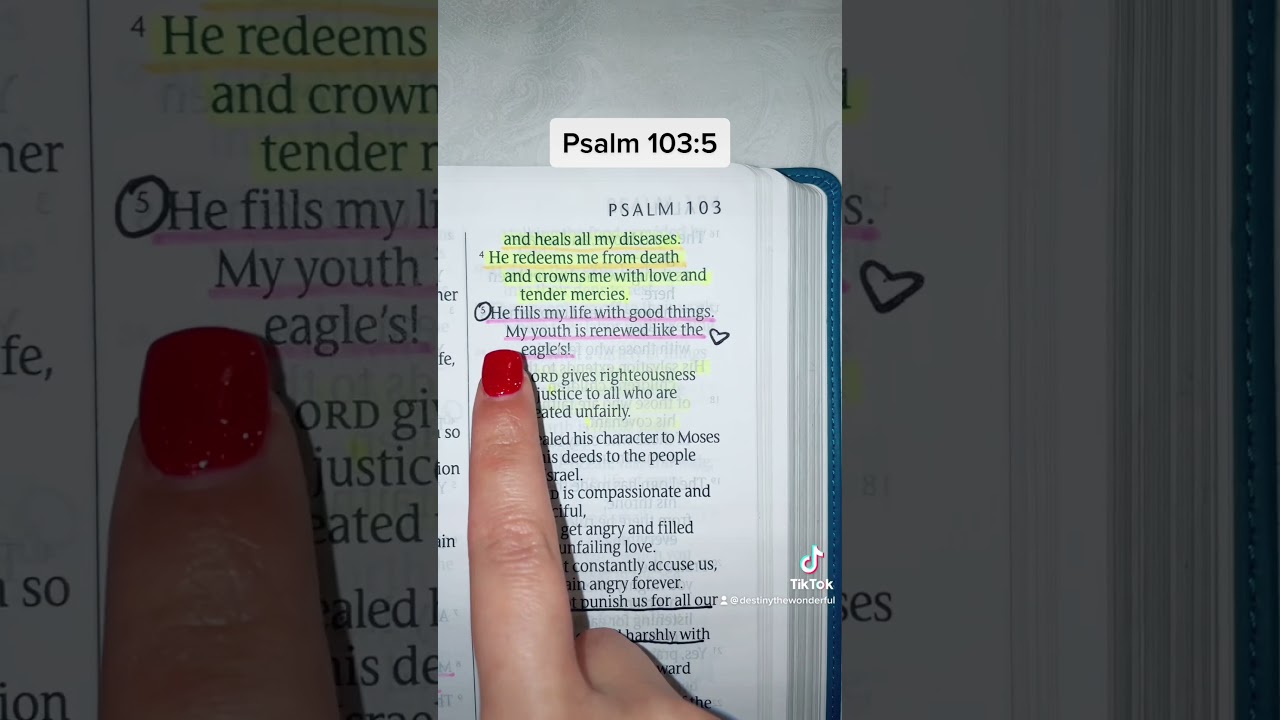 Psalm 103:5
PSALM 103
and heals all my diseases.
4 He redeems me from death
and crowns me with love and
tender mercies.
5 He fills my life with good things.
My youth is renewed like the
eagle's!
ORD gives righteousness
justice to all who are
eated unfairly.
ealed his character to Moses
is deeds to the people
srael.
is compassionate and
ciful,
get angry and filled
unfailing love.
t constantly accuse us,
ain angry forever.
t punish us for all our
harshly with
ward
the
TikTok
@destinythewonderful